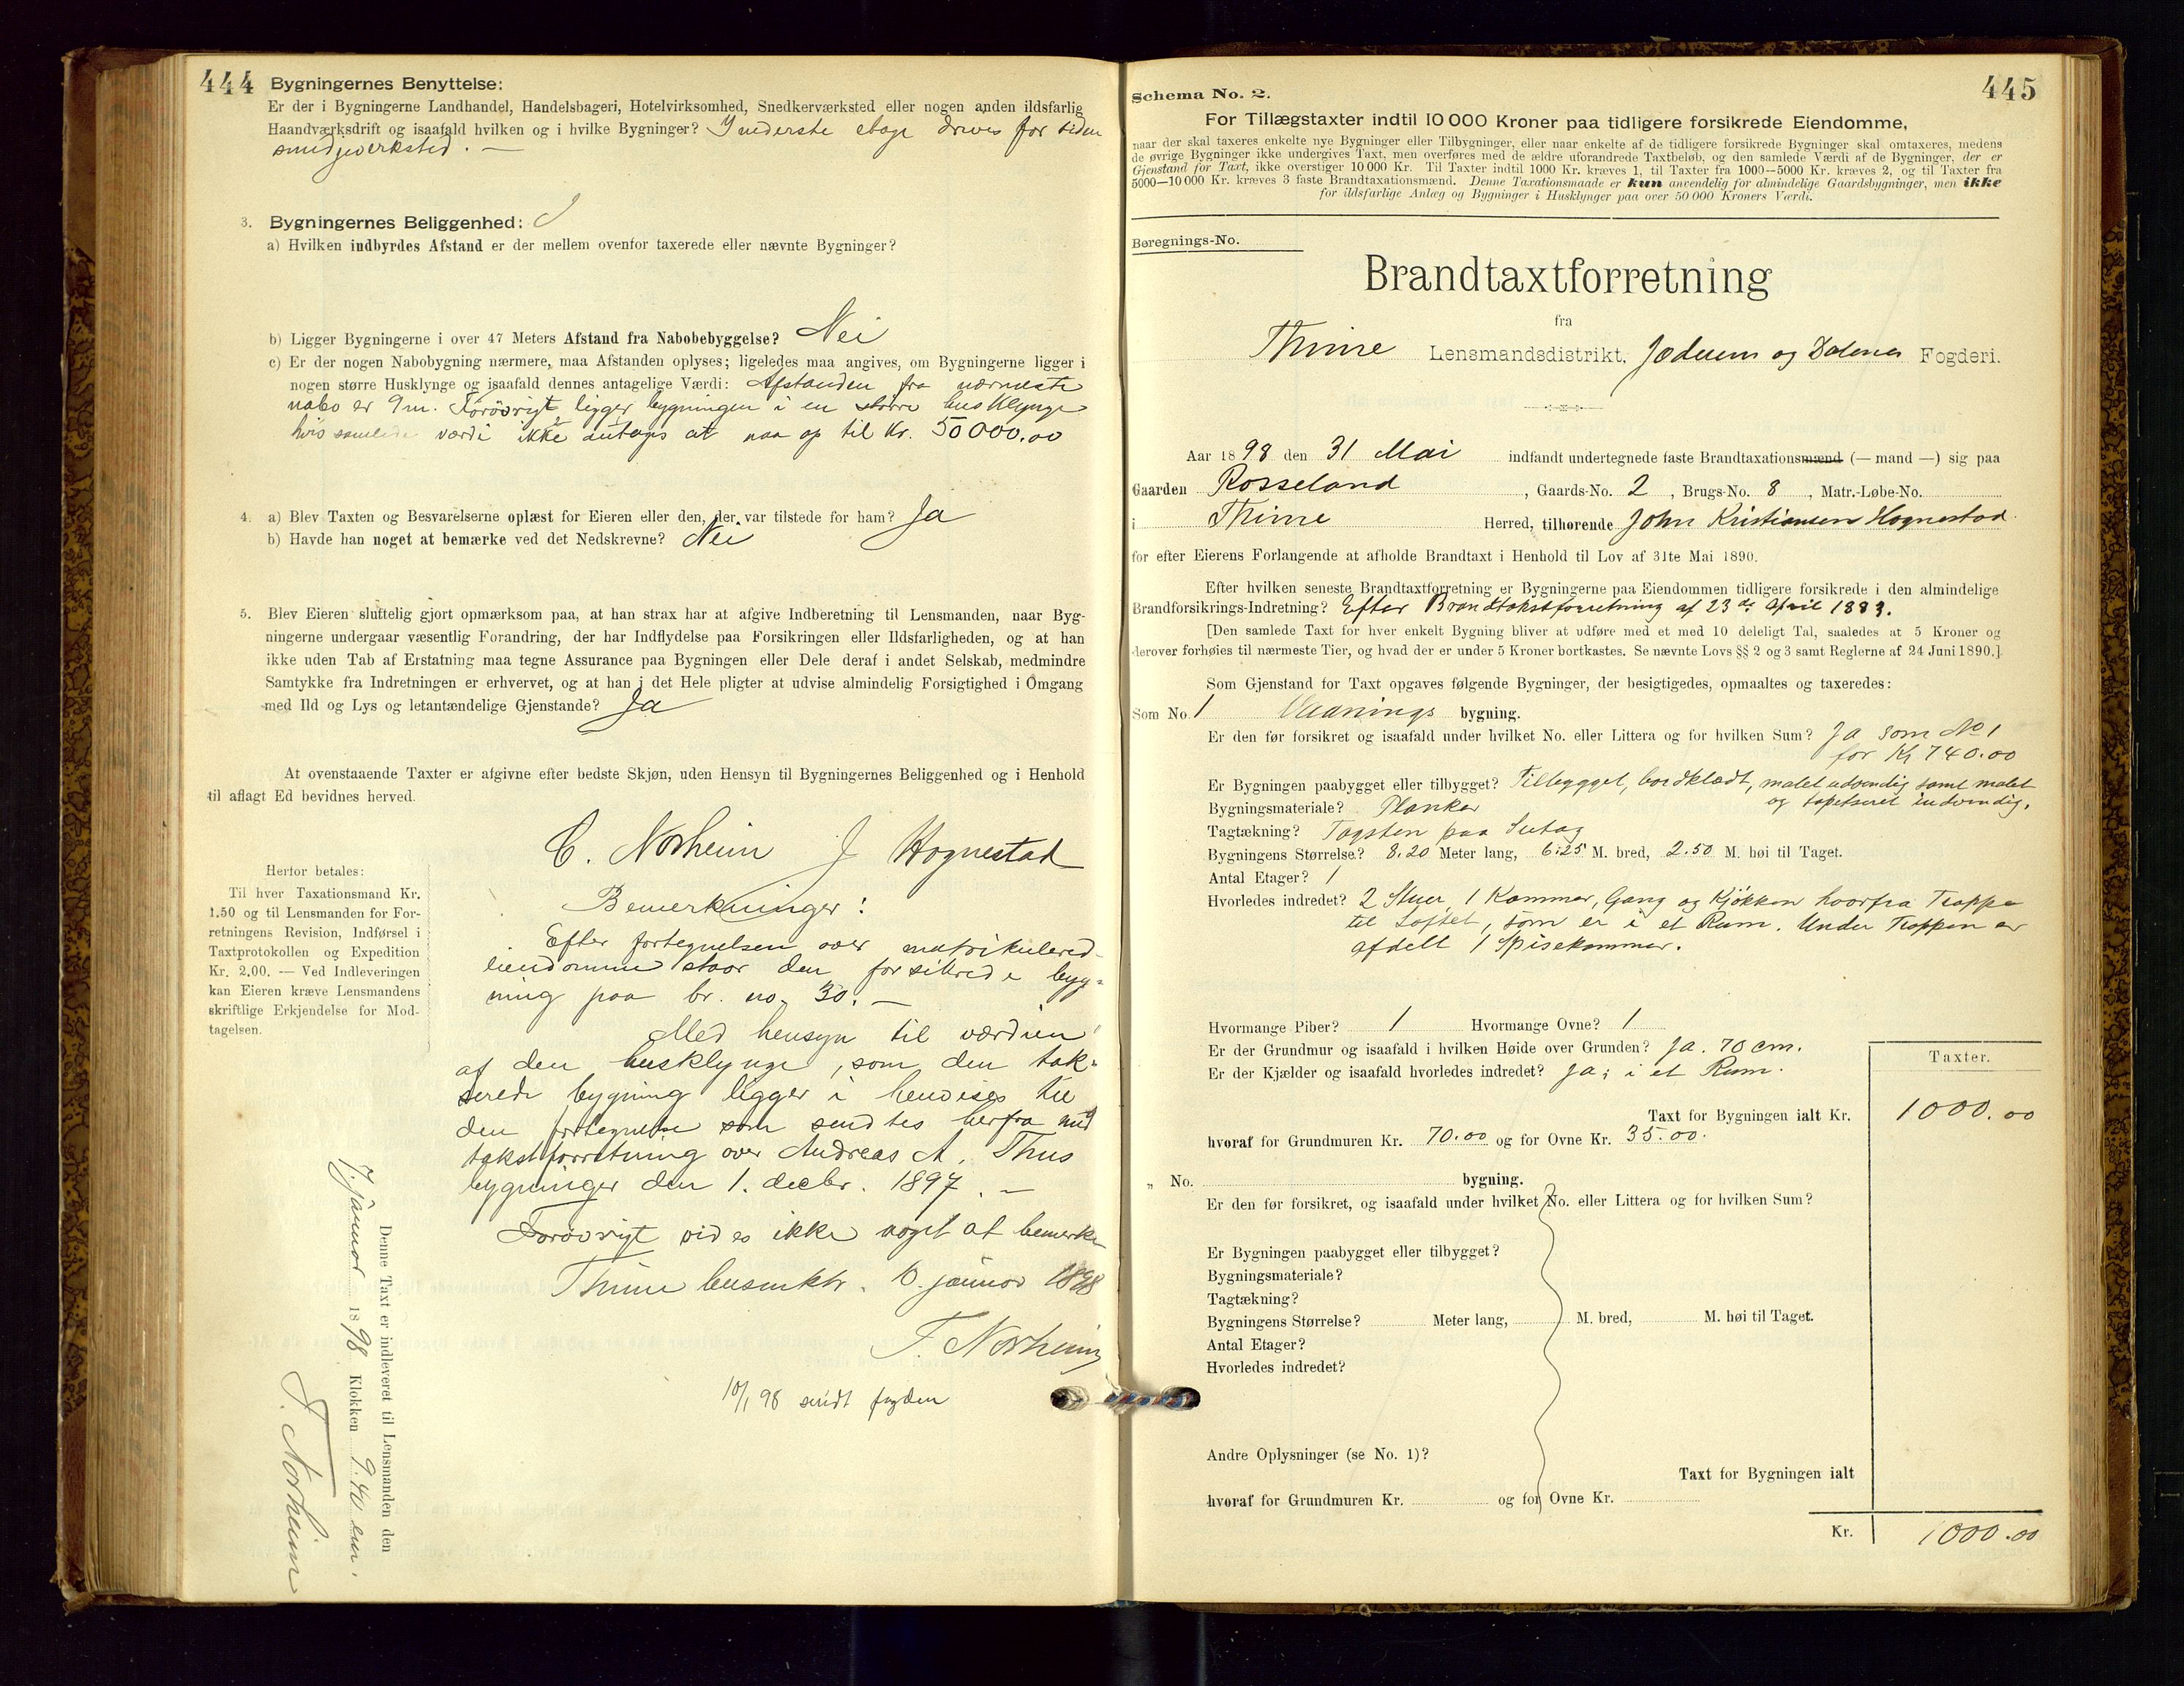 444
Bygningernes Benyttelse:
Er der i Bygningerne Landhandel, Handelsbageri, Hotelvirksomhed, Snedkerværksted eller nogen anden ildsfarlig
Haandværksdrift og isaafald hvilken og i hvilke Bygninger? I nederste etage drives for tiden
smedjeverksted. —
3. Bygningernes Beliggenhed:
a) Hvilken indbyrdes Afstand er der mellem ovenfor taxerede eller nævnte Bygninger?
b) Ligger Bygningerne i over 47 Meters Afstand fra Nabobebyggelse? Nei
c) Er der nogen Nabobygning nærmere, maa Afstanden oplyses; ligeledes maa angives, om Bygningerne ligger i
nogen større Husklynge og isaafald dennes antagelige Værdi: Afstanden fra nærmeste
nabo er 9 m. Forøvrigt ligger bygningen i en større husklynge
hvis samlede værdi ikke antages at naa op til Kr. 50000.00
4. a) Blev Taxten og Besvarelserne oplæst for Eieren eller den, der var tilstede for ham? Ja
b) Havde han noget at bemærke ved det Nedskrevne? Nei
5. Blev Eieren sluttelig gjort opmærksom paa, at han strax har at afgive Indberetning til Lensmanden, naar Byg-
ningerne undergaar væsentlig Forandring, der har Indflydelse paa Forsikringen eller Ildsfarligheden, og at han
ikke uden Tab af Erstatning maa tegne Assurance paa Bygningen eller Dele deraf i andet Selskab, medmindre
Samtykke fra Indretningen er erhvervet, og at han i det Hele pligter at udvise almindelig Forsigtighed i Omgang
med Ild og Lys og letantændelige Gjenstande? Ja
At ovenstaaende Taxter er afgivne efter bedste Skjøn, uden Hensyn til Bygningernes Beliggenhed og i Henhold
til aflagt Ed bevidnes herved.
C. Norheim J Hognestad
Herfor betales:
Til hver Taxationsmand Kr.
1.50 og til Lensmanden for For-
retningens Revision, Indførsel i
Taxtprotokollen og Expedition
Kr. 2.00. — Ved Indleveringen
kan Eieren kræve Lensmandens
skriftlige Erkjendelse for Mod-
tagelsen.
Bemerkninger:
Efter fortegnelsen over matrikulered-
eiendomme staar den forsikrede byg-
ning paa br. no. 30. —
Med hensyn til værdien
af den husklynge, som den tak-
serede bygning ligger i henvises til
den fortegnelse som sendtes herfra med
takstforretning over Andreas A. Thus
bygninger den 1. decbr. 1897. —
Forøvrigt vides ikke noget at bemerke
Thime lensmktr. 10. januar 1898
T. Norheim
10/1 98 sendt fogden
Denne Taxt er indleveret til Lensmanden den
7. januar 1898 Klokken 9.40 em.
T. Norheim
445
Schema No. 2.
For Tillægstaxter indtil 10 000 Kroner paa tidligere forsikrede Eiendomme,
naar der skal taxeres enkelte nye Bygninger eller Tilbygninger, eller naar enkelte af de tidligere forsikrede Bygninger skal omtaxeres, medens
de øvrige Bygninger ikke undergives Taxt, men overføres med de ældre uforandrede Taxtbeløb, og den samlede Værdi af de Bygninger, der er
Gjenstand for Taxt, ikke overstiger 10 000 Kr. Til Taxter indtil 1000 Kr. kræves 1, til Taxter fra 1000—5000 Kr. kræves 2, og til Taxter fra
5000—10 000 Kr. kræves 3 faste Brandtaxationsmænd. Denne Taxationsmaade er kun anvendelig for almindelige Gaardsbygninger, men ikke
for ildsfarlige Anlæg og Bygninger i Husklynger paa over 50 000 Kroners Værdi.
Beregnings-No.
Brandtaxtforretning
fra
Thime Lensmandsdistrikt, Jæderen og Dalenes Fogderi.
Aar 1898 den 31 Mai indfandt undertegnede faste Brandtaxationsmænd (— mand —) sig paa
Gaarden Rosseland, Gaards-No. 2, Brugs-No. 8, Matr.-Løbe-No.
i Thime Herred, tilhørende John Kristiansen Hognestad
for efter Eierens Forlangende at afholde Brandtaxt i Henhold til Lov af 31te Mai 1890.
Efter hvilken seneste Brandtaxtforretning er Bygningerne paa Eiendommen tidligere forsikrede i den almindelige
Brandforsikrings-Indretning? Efter Brandtakstforretning af 23de April 1883.
[Den samlede Taxt for hver enkelt Bygning bliver at udføre med et med 10 deleligt Tal, saaledes at 5 Kroner og
derover forhøies til nærmeste Tier, og hvad der er under 5 Kroner bortkastes. Se nævnte Lovs §§ 2 og 3 samt Reglerne af 24 Juni 1890.]
Som Gjenstand for Taxt opgaves følgende Bygninger, der besigtigedes, opmaaltes og taxeredes:
Som No. 1 Vaanings bygning.
Er den før forsikret og isaafald under hvilket No. eller Littera og for hvilken Sum? Ja som No 1
for Kr 740.00
Er Bygningen paabygget eller tilbygget? Tilbygget, bordklædt, malet udvendig samt malet
og tapetseret indvendig.
Bygningsmateriale? Planker
Tagtækning? Tagsten paa Sutag
Bygningens Størrelse? 8.20 Meter lang, 6.25 M. bred, 2.50 M. høi til Taget.
Antal Etager? 1
Hvorledes indredet? 2 Stuer, 1 Kammer, Gang og Kjøkken hvorfra Trappe
til Loftet, som er i et Rum. Under Trappen er
afdelt 1 Spisekammer.
Hvormange Piber? 1 Hvormange Ovne? 1
Er der Grundmur og isaafald i hvilken Høide over Grunden? Ja. 70 cm.
Er der Kjælder og isaafald hvorledes indredet? Ja; i et Rum.
Taxter.
Taxt for Bygningen ialt Kr. 1000.00
hvoraf for Grundmuren Kr. 70.00 og for Ovne Kr. 35.00.
„ No. bygning.
Er den før forsikret, og isaafald under hvilket No. eller Littera og for hvilken Sum?
Er Bygningen paabygget eller tilbygget?
Bygningsmateriale?
Tagtækning?
Bygningens Størrelse? Meter lang, M. bred, M. høi til Taget.
Antal Etager?
Hvorledes indredet?
Andre Oplysninger (se No. 1)?
Taxt for Bygningen ialt
hvoraf for Grundmuren Kr. og for Ovne Kr.
Kr. 1000.00